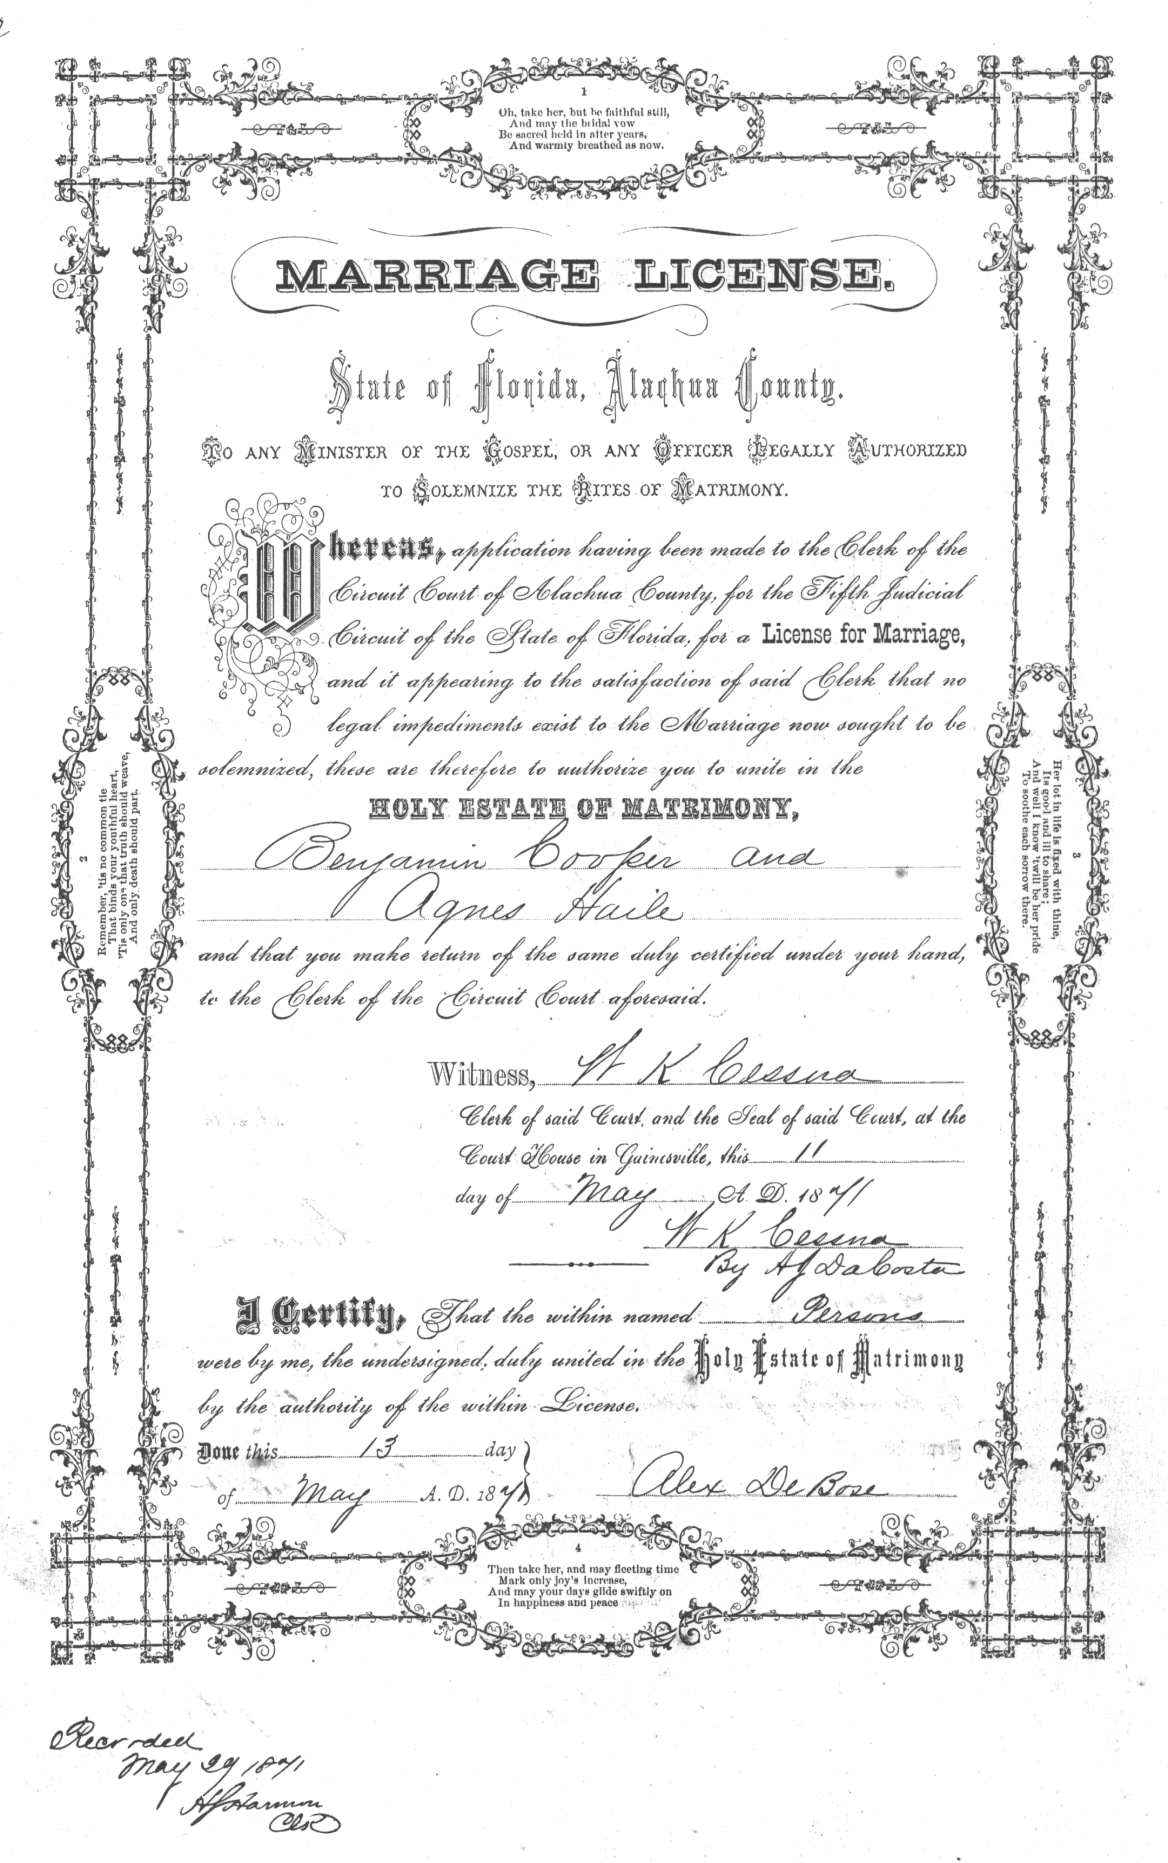 1
Oh, take her, but be faithful still,
And may the bridal vow
Be sacred held in after years,
And warmly breathed as now.
MARRIAGE LICENSE.
State of Florida, Alachua County.
TO ANY MINISTER OF THE GOSPEL, OR ANY OFFICER LEGALLY AUTHORIZED
TO SOLEMNIZE THE RITES OF MATRIMONY.
Whereas, application having been made to the Clerk of the
Circuit Court of Alachua County, for the Fifth Judicial
Circuit of the State of Florida, for a License for Marriage,
and it appearing to the satisfaction of said Clerk that no
legal impediments exist to the Marriage now sought to be
solemnized, these are therefore to authorize you to unite in the
HOLY ESTATE OF MATRIMONY,
Benjamin Cooper and
Agnes Haile
and that you make return of the same duly certified under your hand,
to the Clerk of the Circuit Court aforesaid.
2
Remember, 'tis no common tie
That binds your youthful heart,
'Tis only one that truth should weave,
And only death should part.
3
Her lot in life is fixed with thine,
Its good and ill to share;
And well I know 'twill be her pride
To soothe each sorrow there.
Witness, W K Cessna
Clerk of said Court, and the Seal of said Court, at the
Court House in Gainesville, this 11
day of May A. D. 1871
W K Cessna
By AJ DaCosta
I Certify, That the within named Persons
were by me, the undersigned, duly united in the Holy Estate of Matrimony
by the authority of the within License.
Done this 13 day
of May A. D. 1871
Alex DeBose
4
Then take her, and may fleeting time
Mark only joy's increase,
And may your days glide swiftly on
In happiness and peace
Recorded
May 29 1871
Harmon
Clk